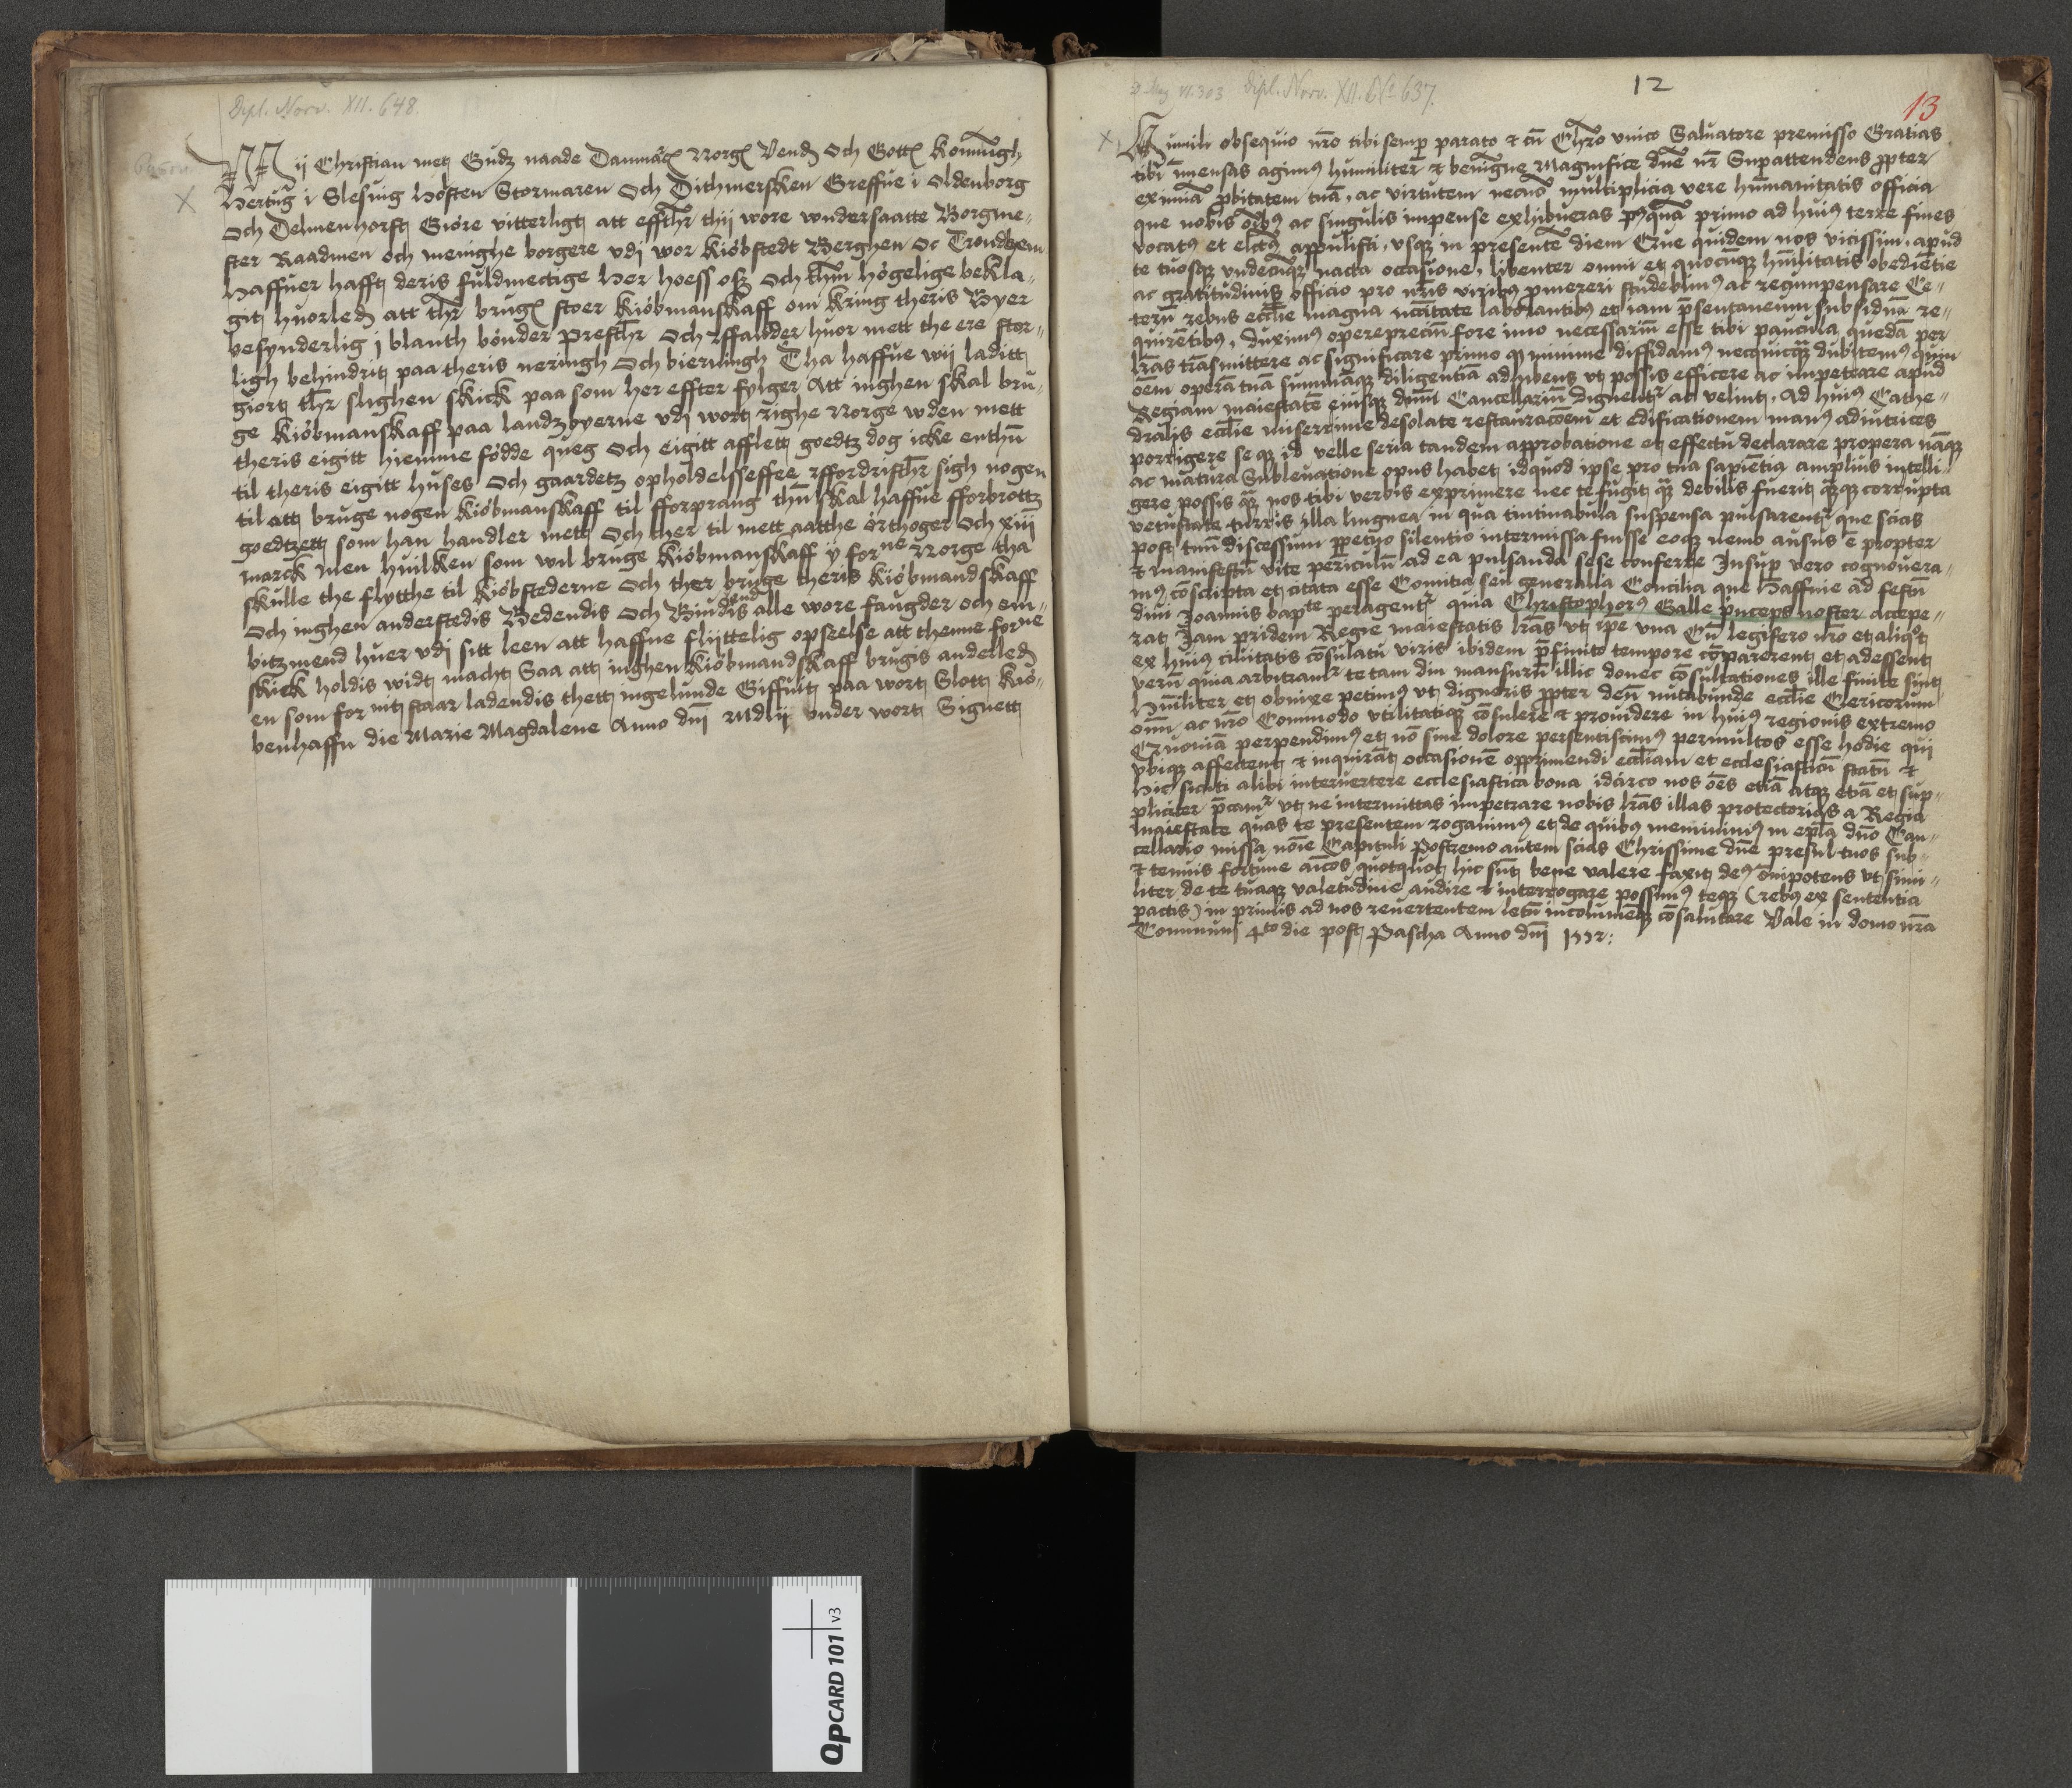 Dipl. Norv. XII. 648.
Wij Christian mett Gudz naade Danmarcks Norges Vendis och Gottis Konnūgh
Hertūg i Slesuig Holsten Stormaren och Dithmersken Greffue i Oldenborg
och Delmenhorst Giöre vitterligt att effthr thij wore wndersaatte Borgme-
ster Raadmen och menighe borgere vdj wor kiöbstedt Berghen oc Trondhem
Haffuer hafft deris fuldmectige Her hoess oss och thm högelige bekla-
git huorledis att thr bruges stoer kiöbmanskaff om kring theris Byer
besynderlig j blanth bönder Presthr och Vffandder huor mett the ere stor-
ligh behindrit paa theris neringh och bierningh Tha haffue wij laditt
giort thr slighen skick paa som her effter fylger Att inghen skal bru-
ge kiöbmanskaff paa landzbyerne vdj wort righe Norge vden mett
theris eigitt hiemme födde queg och eigitt afflett goedtz dog icke enthn
til theris eigitt huses och gaardetz opholdelsse effee Vffordristhr sigh nogen
til att bruge nogen kiöbmanskaff til fforprang thn skal haffue fforbrottz
goedtzett som han handler mett och ther til mett aatthe örthoger och xiij
marck Men huilken som wil bruge kiöbmanskaff y forne Norge tha
skulle the flytthe til kiöbstederne och ther bruge theris kiöbmandskaff
och inghen anderstedis Bedendis och Bindis alle wore faugder och em-
end
bitzmend huer vdj sitt leen att haffue flijttelig opseelse att thenne forne
skick holdis widt macht Saa att inghen kiöbmandskaff brugis anderledis
en som forntt staar ladendis thett ingelunde Giffuit paa wort Slott kiö-
benhaffn die Marie Magdalene Anno dnj Mdlij vnder wort Signett
Dipl. Norv. XII. No 637.
12
13
Humili obsequio nro tibi semp parato & cū Chro vnico Saluatore premisso Gratias
tibi īmensas agimus humiliter & benigne Magnifice dne nr Supattendens ppter
eximiā pbitatem tuā, ac virtutem necnō multiplicia vere humanitatis officia
que nobis oībus ac singulis impense exhibueras pusquā primo ad huius terre fines
vocatus et electus appulisti, vsque in presentē diem Que quidem nos vicissim, apud
te tuosque vndecūque nacta occasione, libenter omni et quocūque humilitatis obediētie
ac gratitudinis officio pro nris viribus pmereri studebimus ac recumpensare Ce-
terū rebus ecclie magna necitate laborantibus et iam psentaneum subsidiū re-
quirētibus, duximus operepreciū fore imo necessariū esse tibi paucula quedā per
lras trāsmittere ac significare primo quod minime diffidamus necquicquā dubitemus quin
oēm operā tuā summāque diligentiā adhibens vt possis efficere ac impetrare apud
Regiam maiestatē eiusque dnum Cancellariū dignentur ac velint, Ad huius Cathe-
dralis ecclie miserrime desolate restauracōem et edificationem manus adiutrices
porrigere seque id velle seria tandem approbatione et effectu declarare propera nāque
ac matura Subleuatione opus habet idquod ipse pro tua sapiētia amplius intelli-
gere possis quā nos tibi verbis exprimere nec te fugit quā debilis fuerit quāque corrupta
vetustate turris illa lingnea in qua tintinabula suspensa pulsarentur que scias
post tuū discessum ppetuo silentio intermissa fuisse eoque nemo ausus ē propter
& manifestū vite periculū ad ea pulsanda sese conferre Insup vero cognouera-
mus cōscripta et citata esse Comitia seu generalia Concilia que Haffnie ad festū
diui Joannis bapte peragentur quia Christophorus Galle pinceps noster accepe-
rat Jam pridem Regie maiestatis lras vt ipe vna Cū legifero nro et aliquot
ex huius ciuitatis cōsulatu viris ibidem pfinito tempore cōparerent et adessent
verū quia arbitramur te tam diu mansurū illic donec cōsultationes ille finite sint
Hūiliter et obnixe petimus vt digneris ppter deū nutabunde ecclie Clericorum
oīm, ac nro Commodo vtilitatique cōsulere & prouidere in huius regionis extremo
Quoniā perpendimus et nō sine dolore persentiscimus permultos esse hodie qui
vbique affectent & inquirāt occasionē opprimendi eccliam et ecclesiasticū statū &
Hic sicuti alibi interuertere ecclesiastica bona idcirco nos oēs etiā atque etiā et sup-
pliciter pcamur vt ne intermittas impetrare nobis lras illas protectorias a Regia
Maiestate quas te presentem rogauimus et de quibus meminimus in epla dno Can-
cellario missa noīe Capituli Postremo autem scias Chrissime dne presul tuos sub-
& tenuis fortune amicos quotquot hic sūt bene valere faxit deus oīpotens vt simi-
liter de te tuaque valetudine audire & interrogare possimus teque (rebus ex sententia
pactis) in primis ad nos reuertentem letū incolumēque cōsalutare Vale in domo nra
Communi 4to die post Pascha Anno dnj 1552: